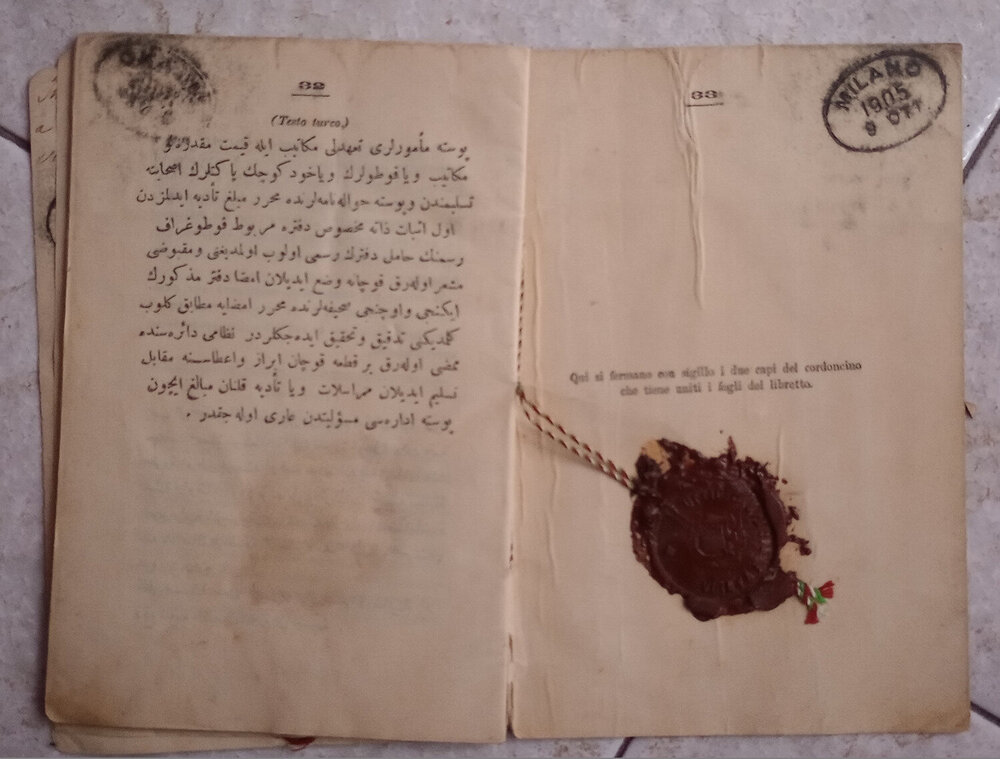 32
(Testo turco.)
پوسته مأمورلری تعهدلی مكاتیب ایله قیمت مقدره لی
مكاتیب ویا قوطولرك ویاخود كوچك پاكتلرك اصحابنه
تسلیمندن وپوسته حواله‌نامه‌لرنده محرر مبلغ تأدیه ایدلمزدن
اول اثبات ذاته مخصوص دفتره مربوط فوطوغراف
رسمنك حامل دفترك رسمی اولوب اولمدیغنی ومقبوضی
مشعر اوله‌رق قوچانه وضع ایدیلان امضا دفتر مذكورك
ایكنجی واوچنجی صحیفه‌لرنده محرر امضایه مطابق كلوب
كلمدیكنی تدقیق وتحقیق ایده‌جكلردر نظامی دائره‌سنده
ممضی اوله‌رق بر قطعه قوچان ابراز واعطاسنه مقابل
تسلیم ایدیلان مراسلات ویا تأدیه قلنان مبالغ ایچون
پوسته اداره‌سی مسؤلیتدن عاری اوله‌جقدر .
33
MILANO
1905
9 OT
Qui si fermano con sigillo i due capi del cordoncino
che tiene uniti i fogli del libretto.